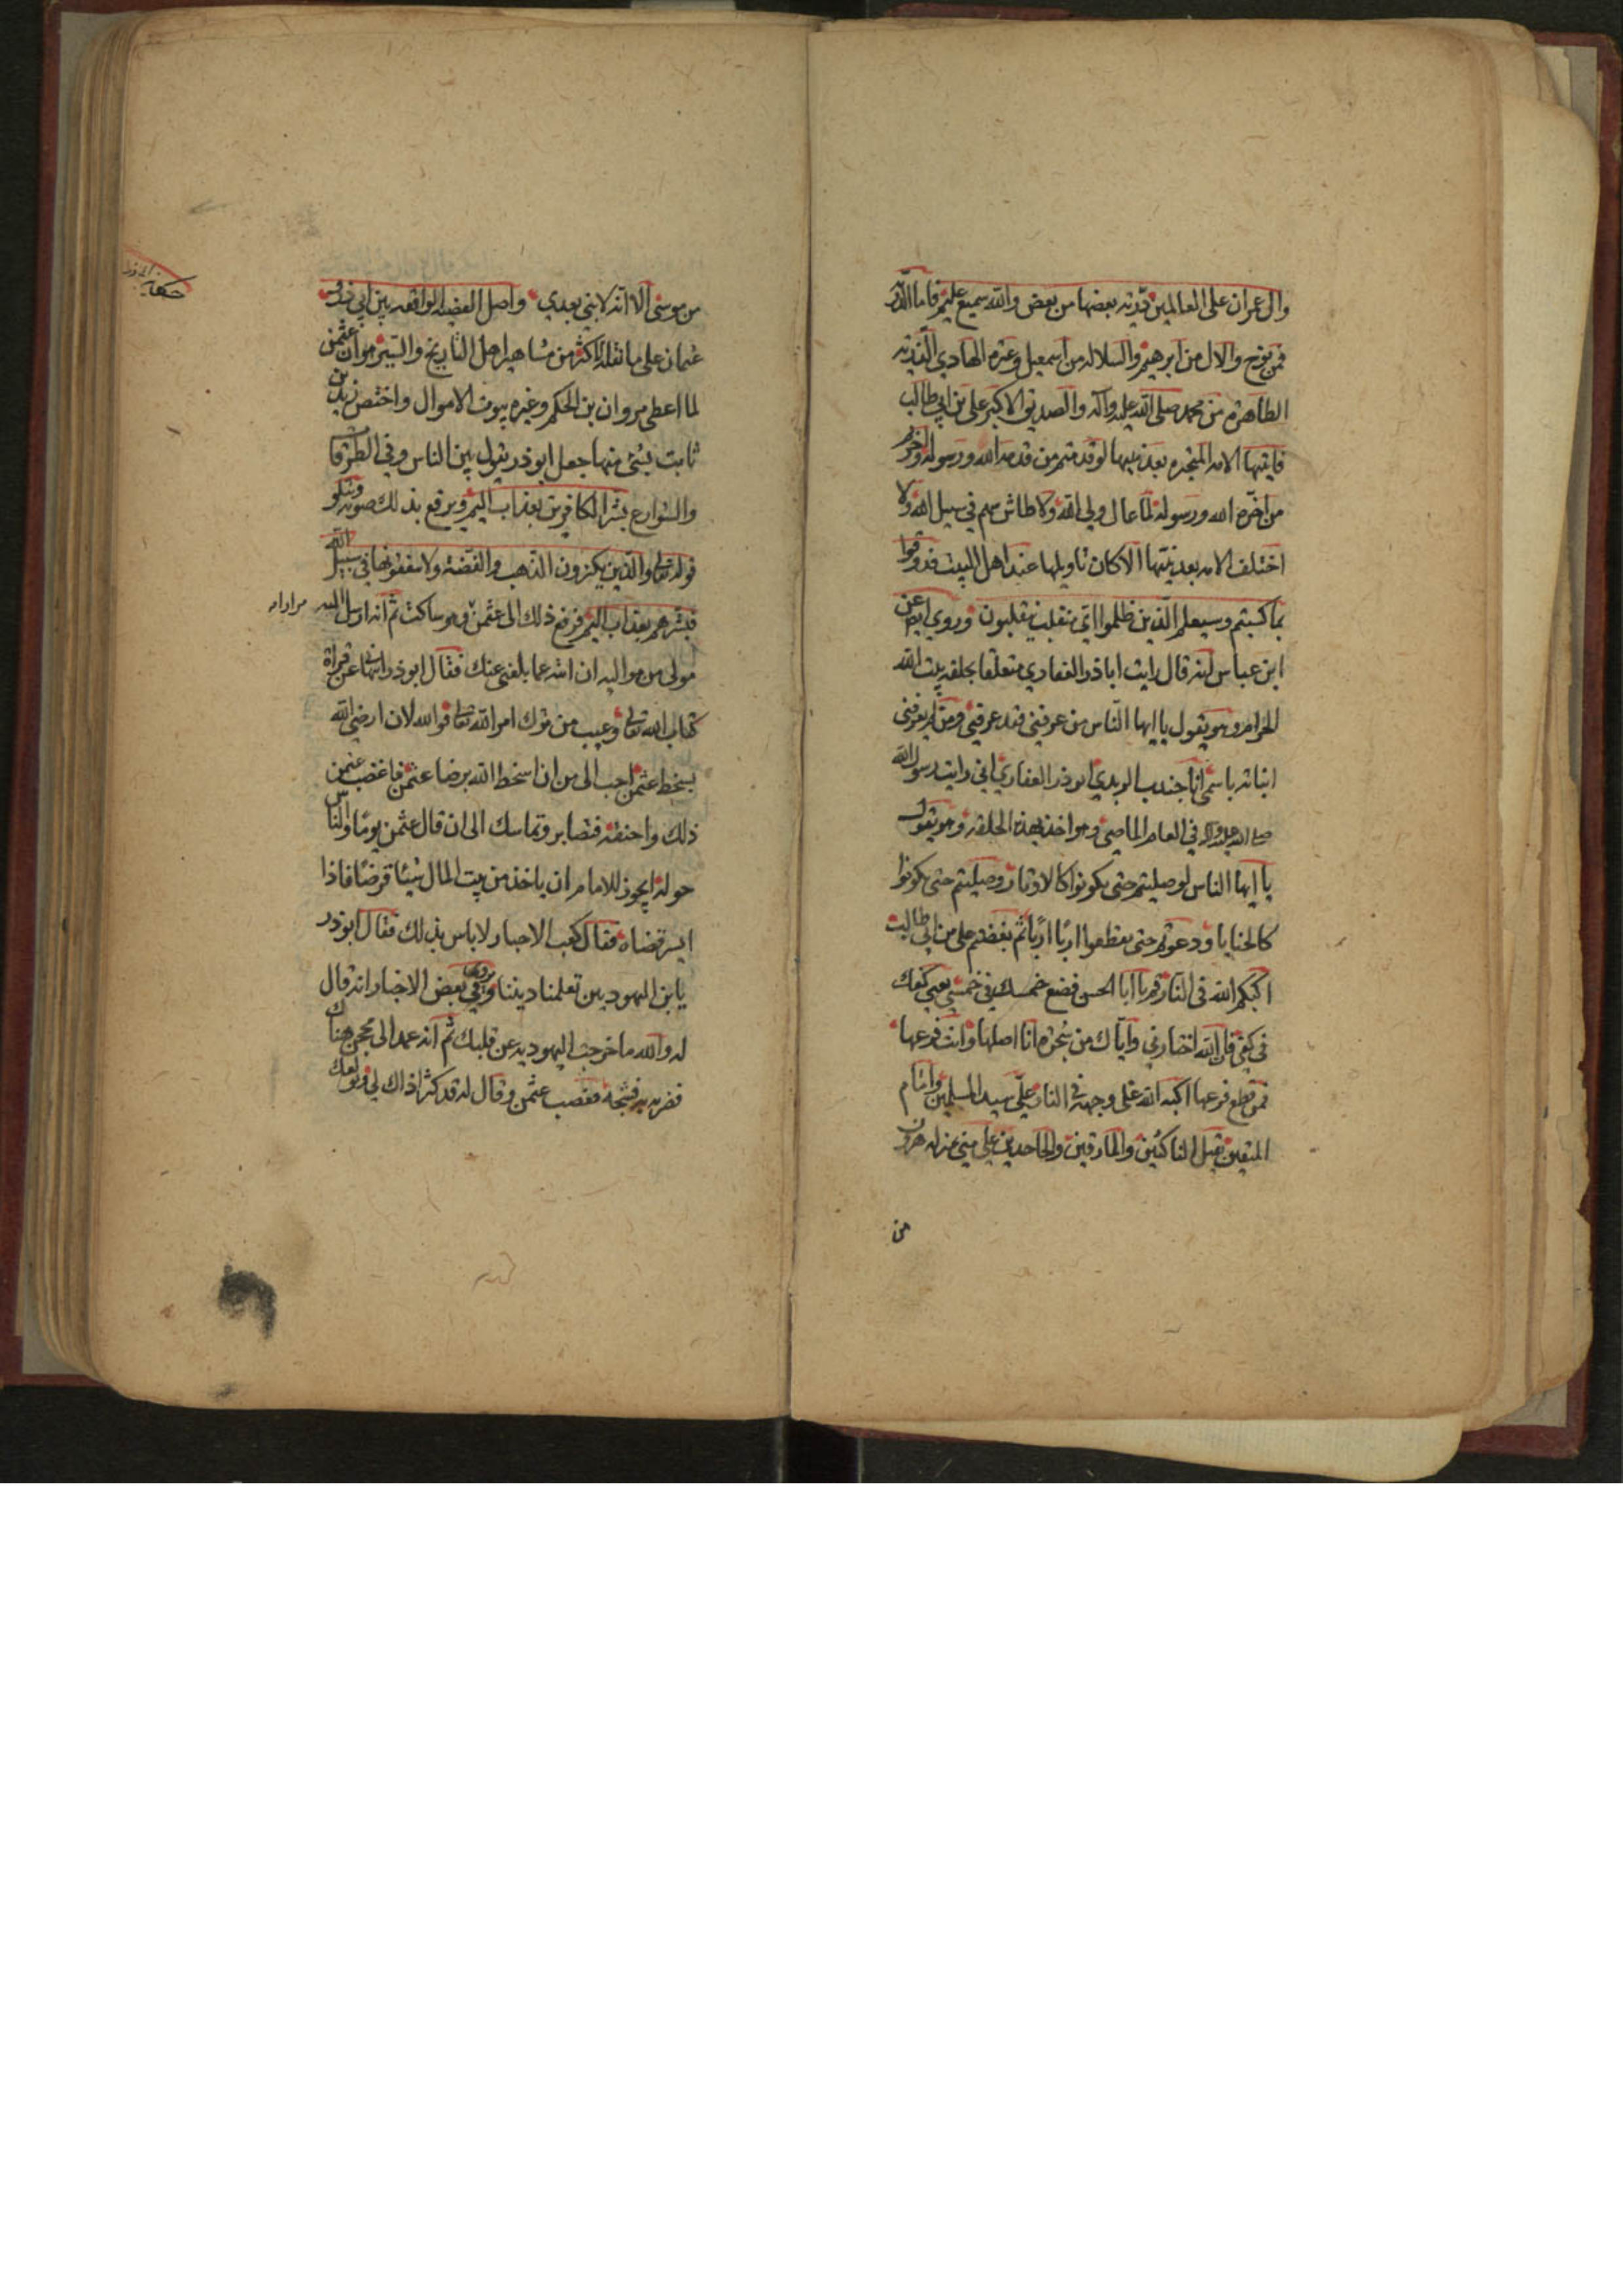 وال عمران على العالمين ذرية بعضها من بعض والله سميع عليم فاما الذرية
فمن نوح والال من ابرهيم والسلالة من اسمعيل وعترة الهادي الذرية
الطاهرة من محمد صلى الله عليه وآله والصديق الاكبر علي بن ابي طالب
فايتها الامة المتحيرة بعد نبيها لو قدمتم من قدمه الله ورسوله واخرتم
من اخره الله ورسوله لما عال ولي الله ولا طاش سهم في سبيل الله ولا
اختلف الامة بعد نبيها الا كان تاويلها عند اهل البيت فذوقوا
بما كسبتم وسيعلم الذين ظلموا اي منقلب ينقلبون وروي ايضا عن
ابن عباس انه قال رايت اباذر الغفاري متعلقا بحلقة بيت الله
الحرام وهو يقول يا ايها الناس من عرفني فقد عرفني ومن لم يعرفني
انباته باسمي انا جندب الربذي ابو ذر الغفاري اني رايت رسول الله
صلى الله عليه وآله في العام الماضي وهو اخذ بهذه الحلقة وهو يقول
يا ايها الناس لو صليتم حتى تكونوا كالاوتار وصليتم حتى تكونوا
كالحنايا ودعوتم حتى تقطعوا اربا اربا ثم بغضتم علي بن ابي طالب
اكبكم الله في النار قم يا ابا الحسن فضع خمسك في خمسي يعني كفك
في كفي فان الله اختارني واياك من شجرة انا اصلها وانت فرعها
فمن قطع فرعها اكبه الله على وجهه في النار علي سيد المسلمين وامام
المتقين يقتل الناكثين والمارقين والجاحدين علي مني بمنزلة هرون
من
من موسى الا انه لا نبي بعدي واصل القضية الواقعة بين ابي ذر و
عثمان على ما نقله اكثر من مشاهير اهل التاريخ والسير هو ان عثمن
لما اعطى مروان بن الحكم وغيره بيوت الاموال واختص زيد بن
ثابت بشئ منها جعل ابو ذر يقول بين الناس وفي الطرقات
والشوارع بشر الكافرين بعذاب اليم ويرفع بذلك صوته ويتلو
قوله تعالى والذين يكنزون الذهب والفضة ولا ينفقونها في سبيل الله
فبشرهم بعذاب اليم فرفع ذلك الى عثمن وهو ساكت ثم انه ارسل اليه
مولى من مواليه ان انته عما بلغني عنك فقال ابو ذر اينهاني عن قراة
كتاب الله تعالى وعيب من ترك امر الله تعالى فوالله لان ارضي الله
بسخط عثمن احب الى من ان اسخط الله برضا عثمن فاغضب عثمن
ذلك واحنقه فتصابر وتماسك الى ان قال عثمن يوما والناس
حوله ايجوز للامام ان ياخذ من بيت المال شيئا قرضا فاذا
ايسر قضاه فقال كعب الاحبار لا باس بذلك فقال ابو ذر
يا بن اليهوديين تعلمنا ديننا وروي في بعض الاخبار انه قال
له والله ما خرجت اليهودية عن قلبك ثم انه عمد الى محجن هناك
فضربه به فشجه فغضب عثمن وقال له قد كثر اذاك لي وتولعك